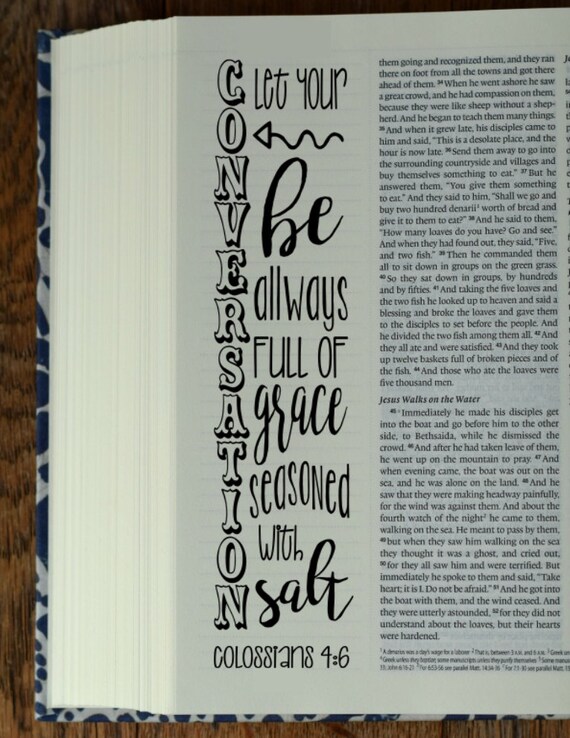 CONVERSATION
Let your
be
allways
FULL OF
grace
SEASONED
with
salt
COLOSSIANS 4:6
them going and recognized them, and they ran
there on foot from all the towns and got there
ahead of them. 34 When he went ashore he saw
a great crowd, and he had compassion on them,
because they were like sheep without a shep-
herd. And he began to teach them many things.
35 And when it grew late, his disciples came to
him and said, "This is a desolate place, and the
hour is now late. 36 Send them away to go into
the surrounding countryside and villages and
buy themselves something to eat." 37 But he
answered them, "You give them something
to eat." And they said to him, "Shall we go and
buy two hundred denarii¹ worth of bread and
give it to them to eat?" 38 And he said to them,
"How many loaves do you have? Go and see."
And when they had found out, they said, "Five,
and two fish." 39 Then he commanded them
all to sit down in groups on the green grass.
40 So they sat down in groups, by hundreds
and by fifties. 41 And taking the five loaves and
the two fish he looked up to heaven and said a
blessing and broke the loaves and gave them
to the disciples to set before the people. And
he divided the two fish among them all. 42 And
they all ate and were satisfied. 43 And they took
up twelve baskets full of broken pieces and of
the fish. 44 And those who ate the loaves were
five thousand men.
Jesus Walks on the Water
45 Immediately he made his disciples get
into the boat and go before him to the other
side, to Bethsaida, while he dismissed the
crowd. 46 And after he had taken leave of them,
he went up on the mountain to pray. 47 And
when evening came, the boat was out on the
sea, and he was alone on the land. 48 And he
saw that they were making headway painfully,
for the wind was against them. And about the
fourth watch of the night² he came to them,
walking on the sea. He meant to pass by them,
49 but when they saw him walking on the sea
they thought it was a ghost, and cried out,
50 for they all saw him and were terrified. But
immediately he spoke to them and said, "Take
heart; it is I. Do not be afraid." 51 And he got into
the boat with them, and the wind ceased. And
they were utterly astounded, 52 for they did not
understand about the loaves, but their hearts
were hardened.